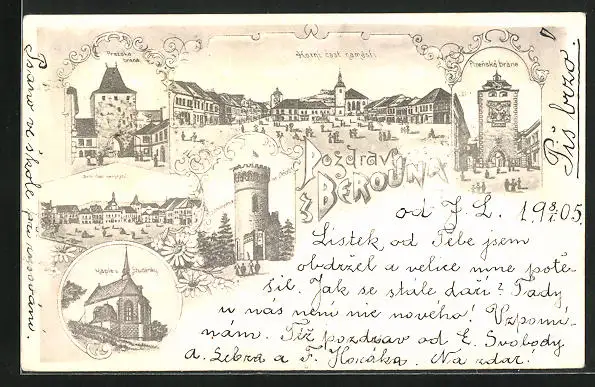 Pražská
brána
Horní část náměstí
Plzeňská brána
Pozdrav
z BEROUNA
Kaple
Psáno ve škole při rýsování.
Piš brzo.
od J. L. 19 8/1. 05.
Lístek od Tebe jsem
obdržel a velice mne potě-
šil. Jak se stále daří? Tady
u nás není nic nového! Vzpomí-
nám. Též pozdrav od E. Svobody
a. Lebra a F. Horáka. Na zdar!